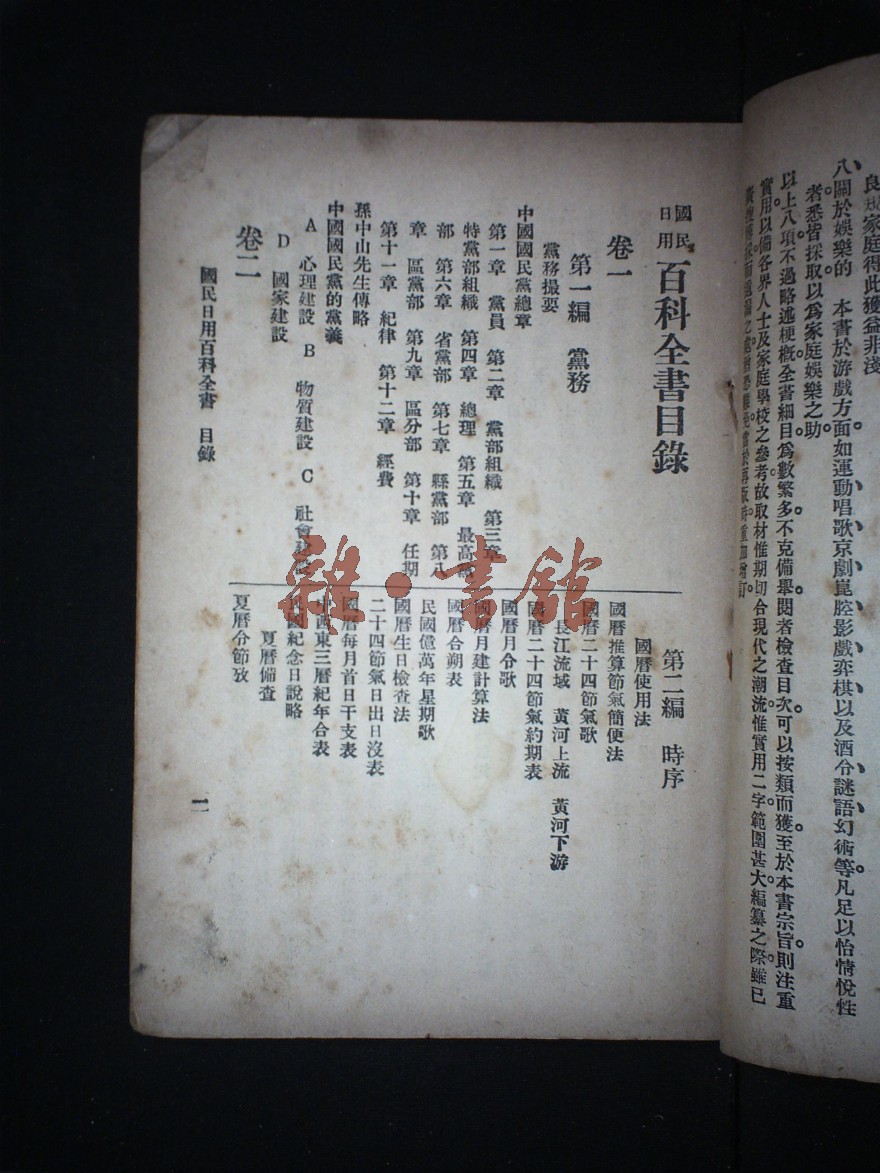 良規家庭得此獲益非淺
八、關於娛樂的　本書於游戲方面如運動唱歌京劇崑腔影戲弈棋以及酒令謎語幻術等凡足以怡情悅性
者悉皆採取以爲家庭娛樂之助
以上八項不過略述梗概全書細目爲數繁多不克備舉閱者檢查目次可以按類而獲至於本書宗旨則注重
實用以備各界人士及家庭學校之參考故取材惟期切合現代之潮流惟實用二字範圍甚大編纂之際雖已
國民日用百科全書目錄
卷一
第一編　黨務
黨務撮要
中國國民黨總章
第一章　黨員　第二章　黨部組織　第三章
特黨部組織　第四章　總理　第五章　最高黨
部　第六章　省黨部　第七章　縣黨部　第八
章　區黨部　第九章　區分部　第十章　任期
第十一章　紀律　第十二章　經費
孫中山先生傳略
中國國民黨的黨義
A　心理建設　B　物質建設　C　社會建設
D　國家建設
卷二
第二編　時序
國曆使用法
國曆推算節氣簡便法
國曆二十四節氣歌
長江流域　黃河上流　黃河下游
國曆二十四節氣約期表
國曆月令歌
國曆月建計算法
國曆合朔表
民國億萬年星期歌
國曆生日檢查法
二十四節氣日出日沒表
國曆每月首日干支表
中西東三曆紀年合表
民國紀念日說略
夏曆備查
夏曆令節攷
國民日用百科全書　目錄
一
雜·書館